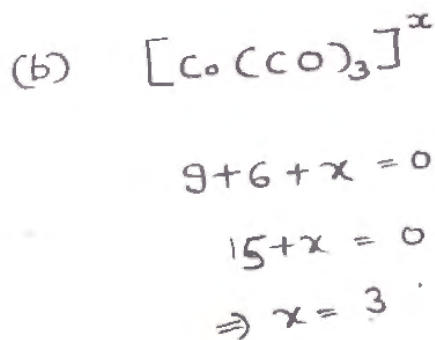 (b) [Co(CO)₃]ˣ
9+6+x = 0
15+x = 0
⇒ x = 3